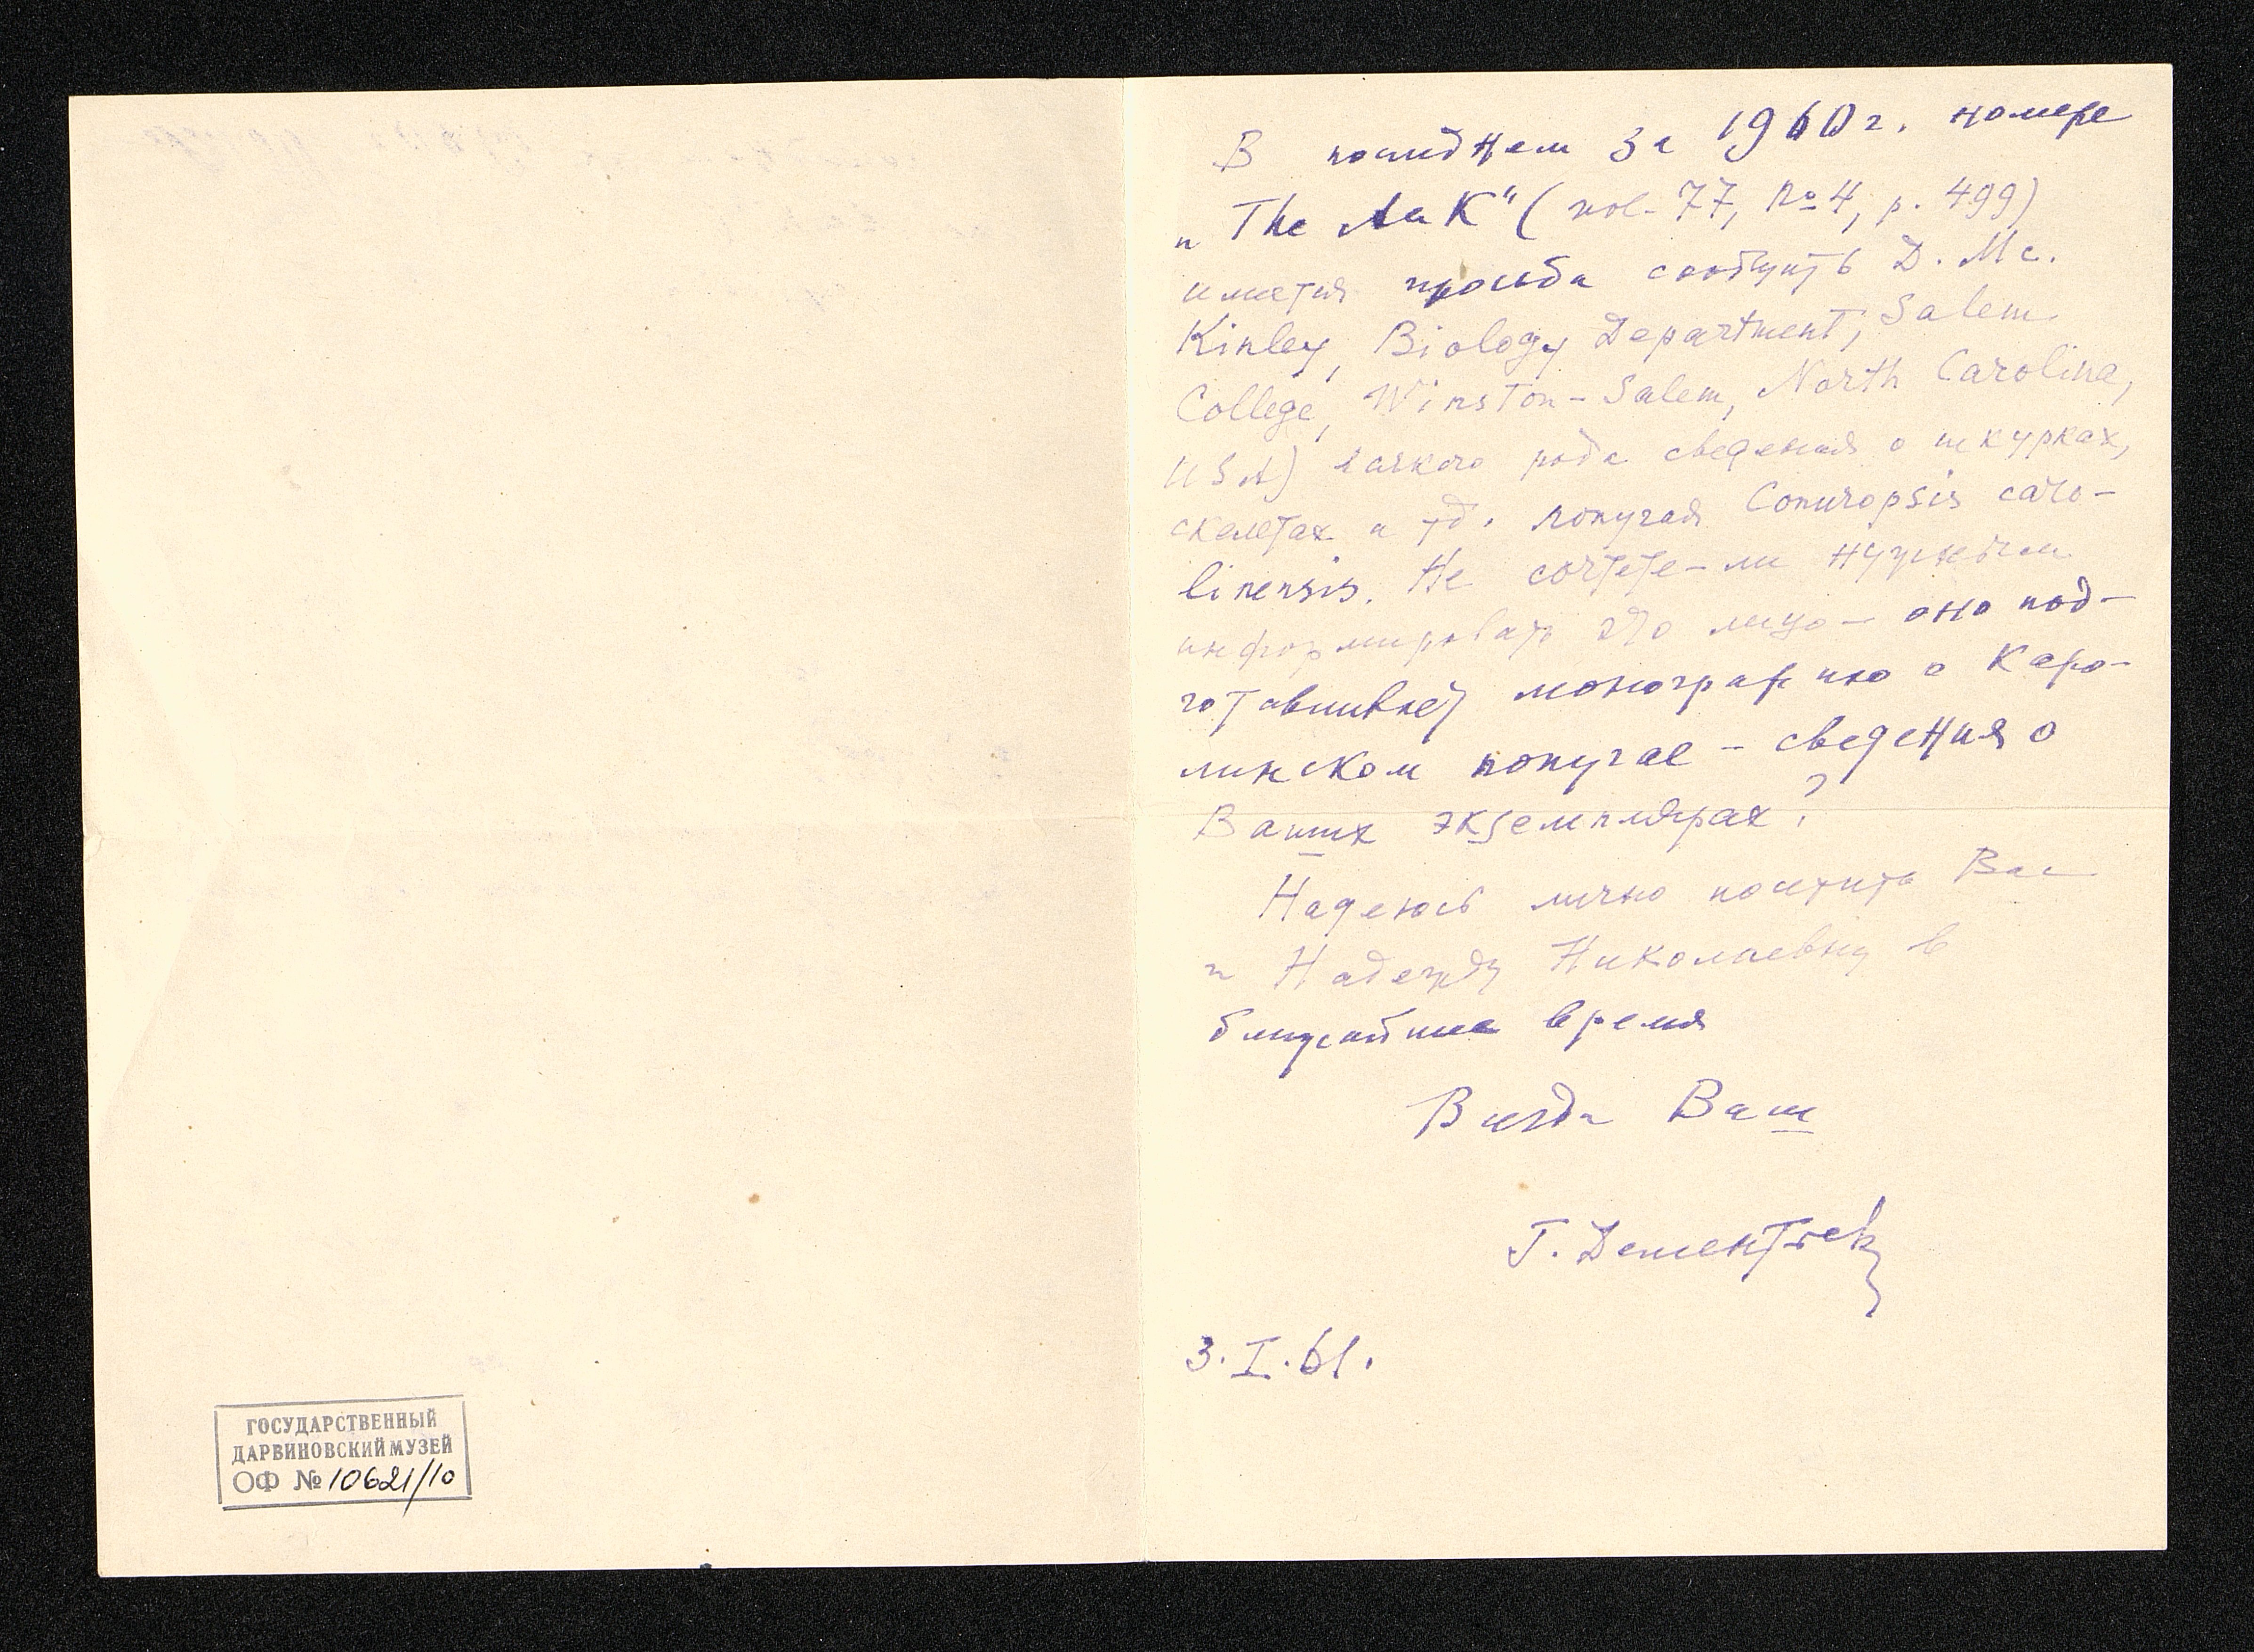 ГОСУДАРСТВЕННЫЙ
ДАРВИНОВСКИЙ МУЗЕЙ
ОФ № 10621/10
В последнем за 1960 г. номере
„The Auk" (vol. 77, № 4, p. 499)
имеется просьба сообщить D. Mc.
Kinley, Biology Department, Salem
College, Winston-Salem, North Carolina,
USA) всякого рода сведения о шкурках,
скелетах и тд. попугая Conuropsis caro-
linensis. Не сочтете-ли нужным
информировать это лицо — оно под-
готавливает монографию о Каро-
линском попугае — сведения о
Ваших экземплярах?
Надеюсь лично посетить Вас
и Надежду Николаевну в
ближайшее время
Всегда Ваш
Г. Дементьев
3.I.61.